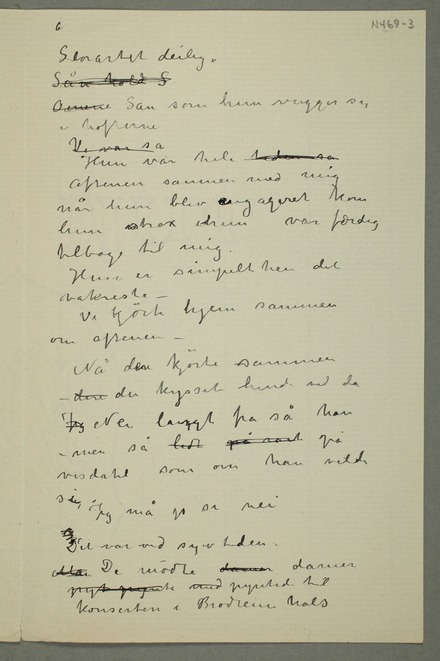 6
N468-3
Storartet deilig.
Såa hold S
San som hun vugger sig
i hofterne
Vi var sa
Hun var hele
aftenen sammen med mig
når hun blev engageret kom
hun strax hun var færdig
tilbage til mig.
Hun er simpelthen det
vakreste –
Vi kjörte hjem sammen
om aftenen –
Nå den kjörte sammen
– du kysset hende vel da
Jeg Nei langt fra så han
– men så på
som om han vilde
si, Jeg må jo si nei
Det var ved syv tiden.
De mödte damer damer
med pynted til
konserten i Brödrene Hals